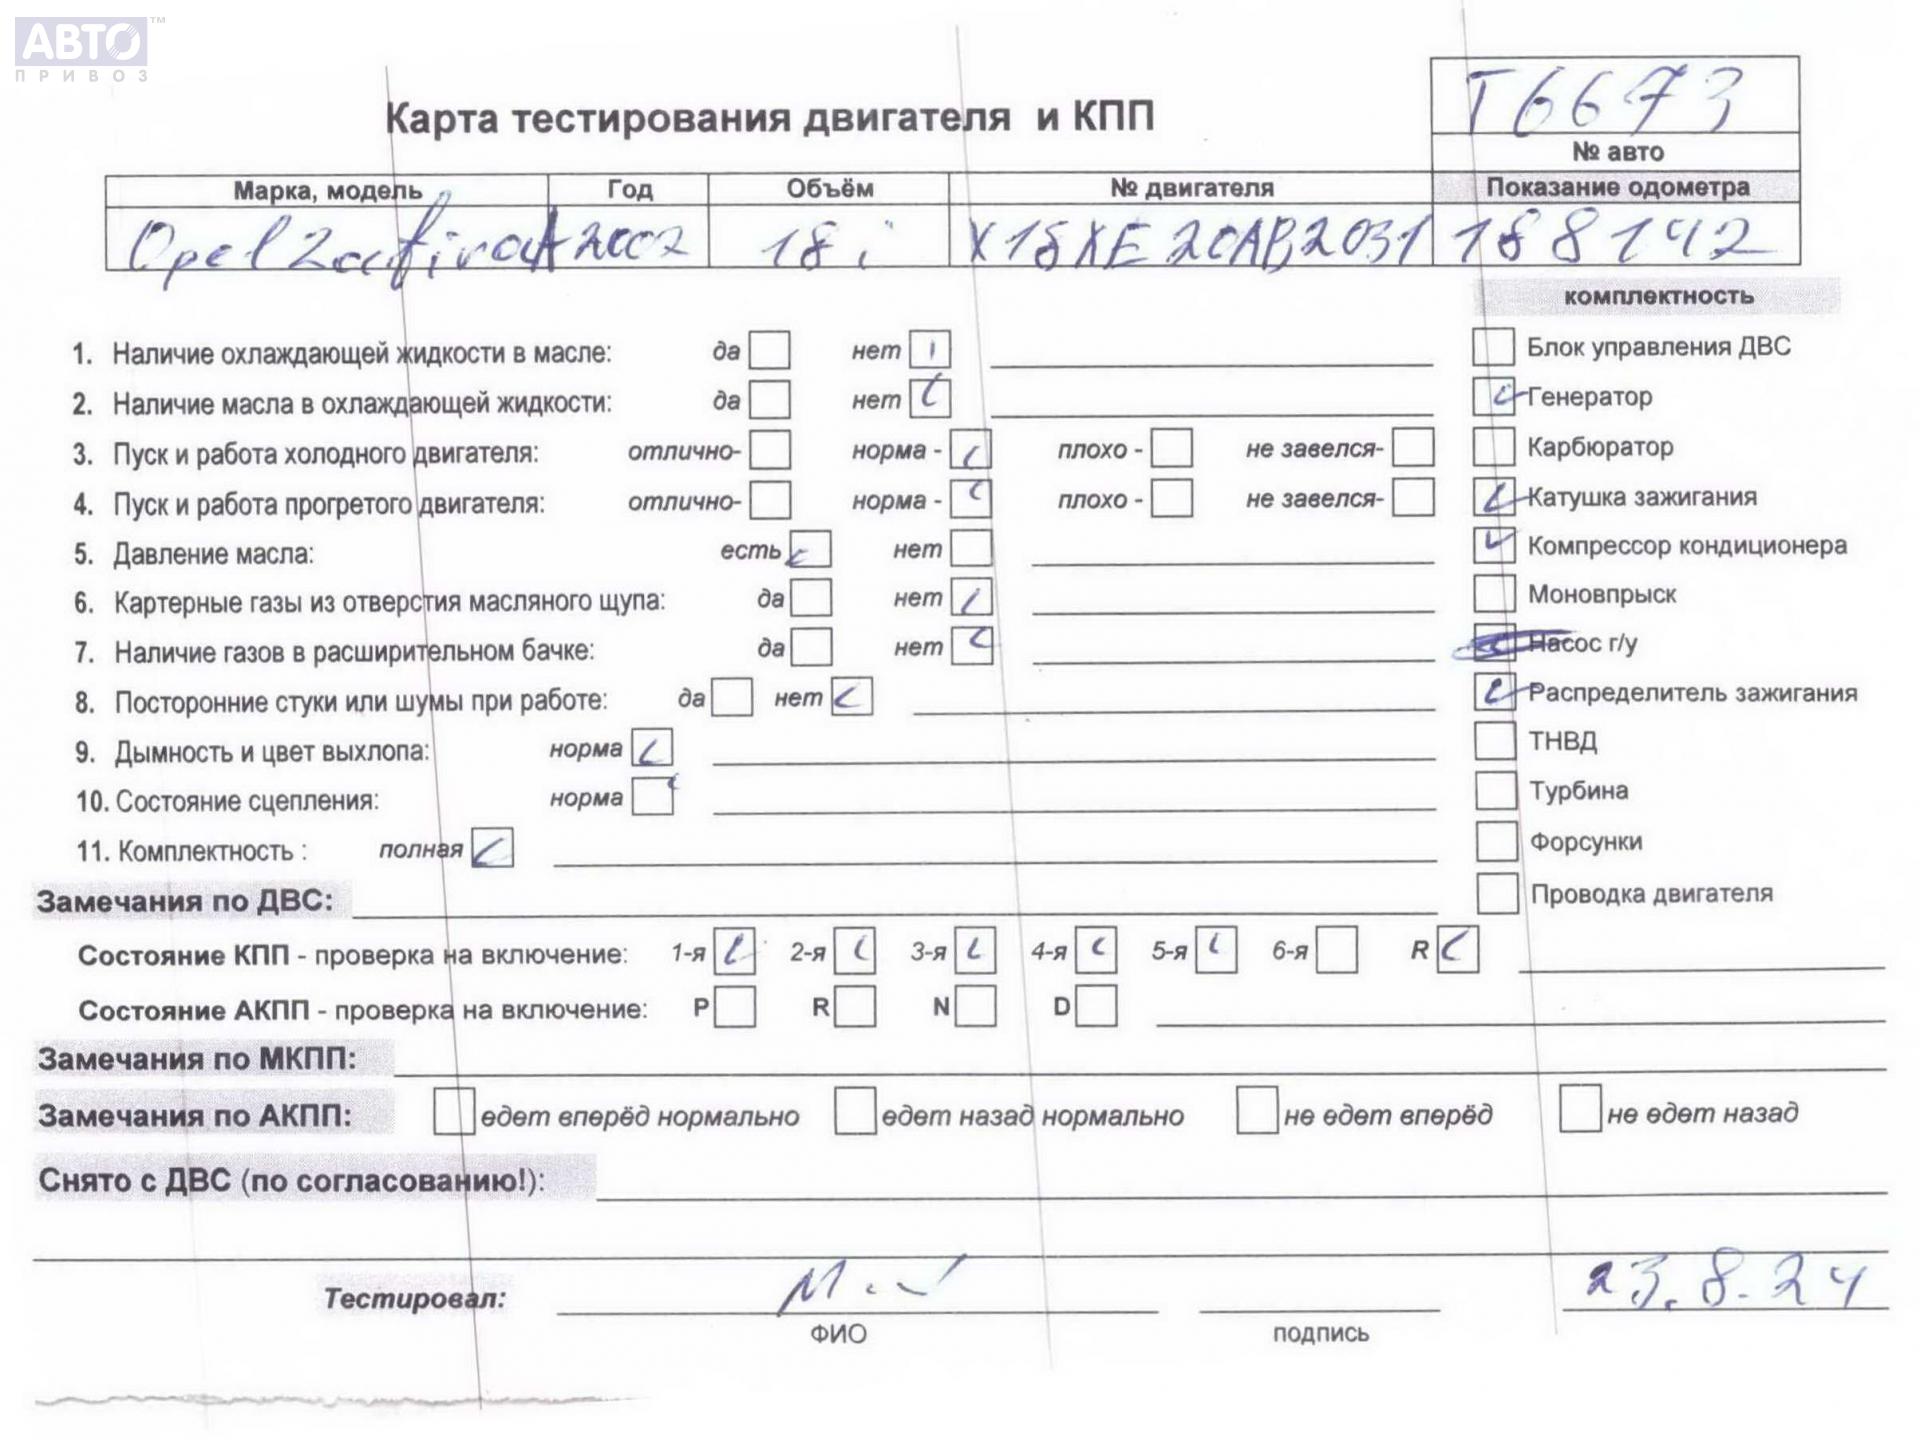 АВТО™
ПРИВОЗ
Карта тестирования двигателя и КПП
T6673
№ авто
Марка, модель Год Объём № двигателя Показание одометра
Opel Zafira A 2002 18i X18XE20AB2031 188142
комплектность
1. Наличие охлаждающей жидкости в масле: да нет
2. Наличие масла в охлаждающей жидкости: да нет
3. Пуск и работа холодного двигателя: отлично- норма - плохо - не завелся-
4. Пуск и работа прогретого двигателя: отлично- норма - плохо - не завелся-
5. Давление масла: есть нет
6. Картерные газы из отверстия масляного щупа: да нет
7. Наличие газов в расширительном бачке: да нет
8. Посторонние стуки или шумы при работе: да нет
9. Дымность и цвет выхлопа: норма
10. Состояние сцепления: норма
11. Комплектность : полная
Блок управления ДВС
Генератор
Карбюратор
Катушка зажигания
Компрессор кондиционера
Моновпрыск
Насос г/у
Распределитель зажигания
ТНВД
Турбина
Форсунки
Проводка двигателя
Замечания по ДВС:
Состояние КПП - проверка на включение: 1-я 2-я 3-я 4-я 5-я 6-я R
Состояние АКПП - проверка на включение: P R N D
Замечания по МКПП:
Замечания по АКПП: едет вперёд нормально едет назад нормально не едет вперёд не едет назад
Снято с ДВС (по согласованию!):
Тестировал: 23.8.24
ФИО подпись